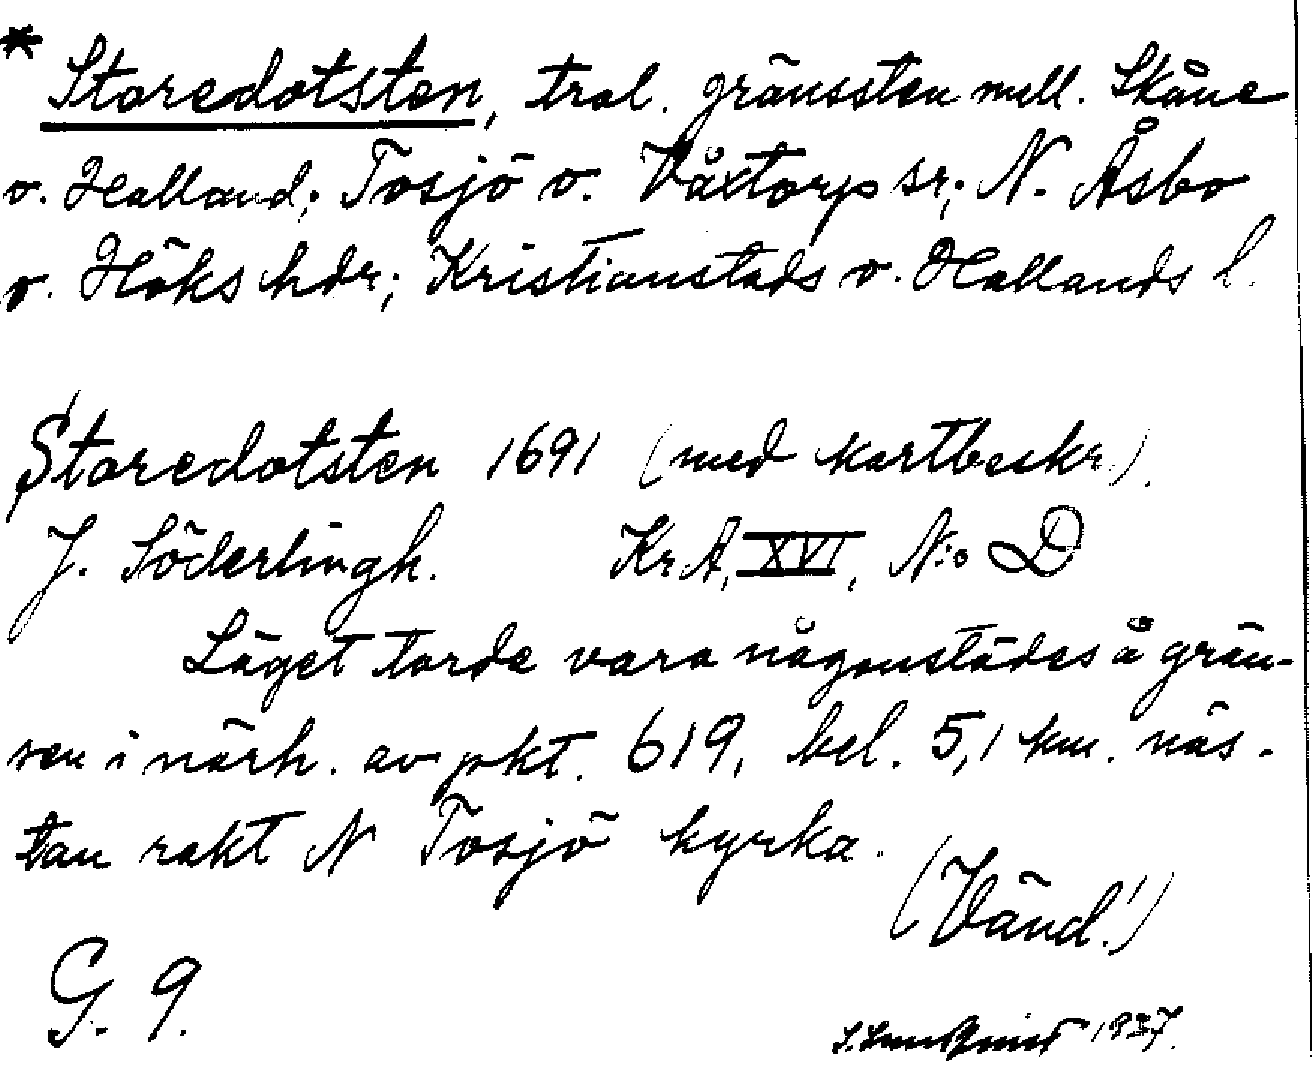 * Storedotsten, trol. gränssten mell. Skåne
o. Halland; Tosjö o. Våxtorp sr; N. Åsbo
o. Höks hdr; Kristianstads o. Hallands l.
Storedotsten 1691 (med kartbeskr.).
J. Söderlingh. KrA, XVI, N:o D
Läget torde vara någonstädes å grän-
sen i närh. av pkt. 619, bel. 5,1 km. näs-
tan rakt N Tosjö kyrka.
(Vänd!)
G. 9.
1937.